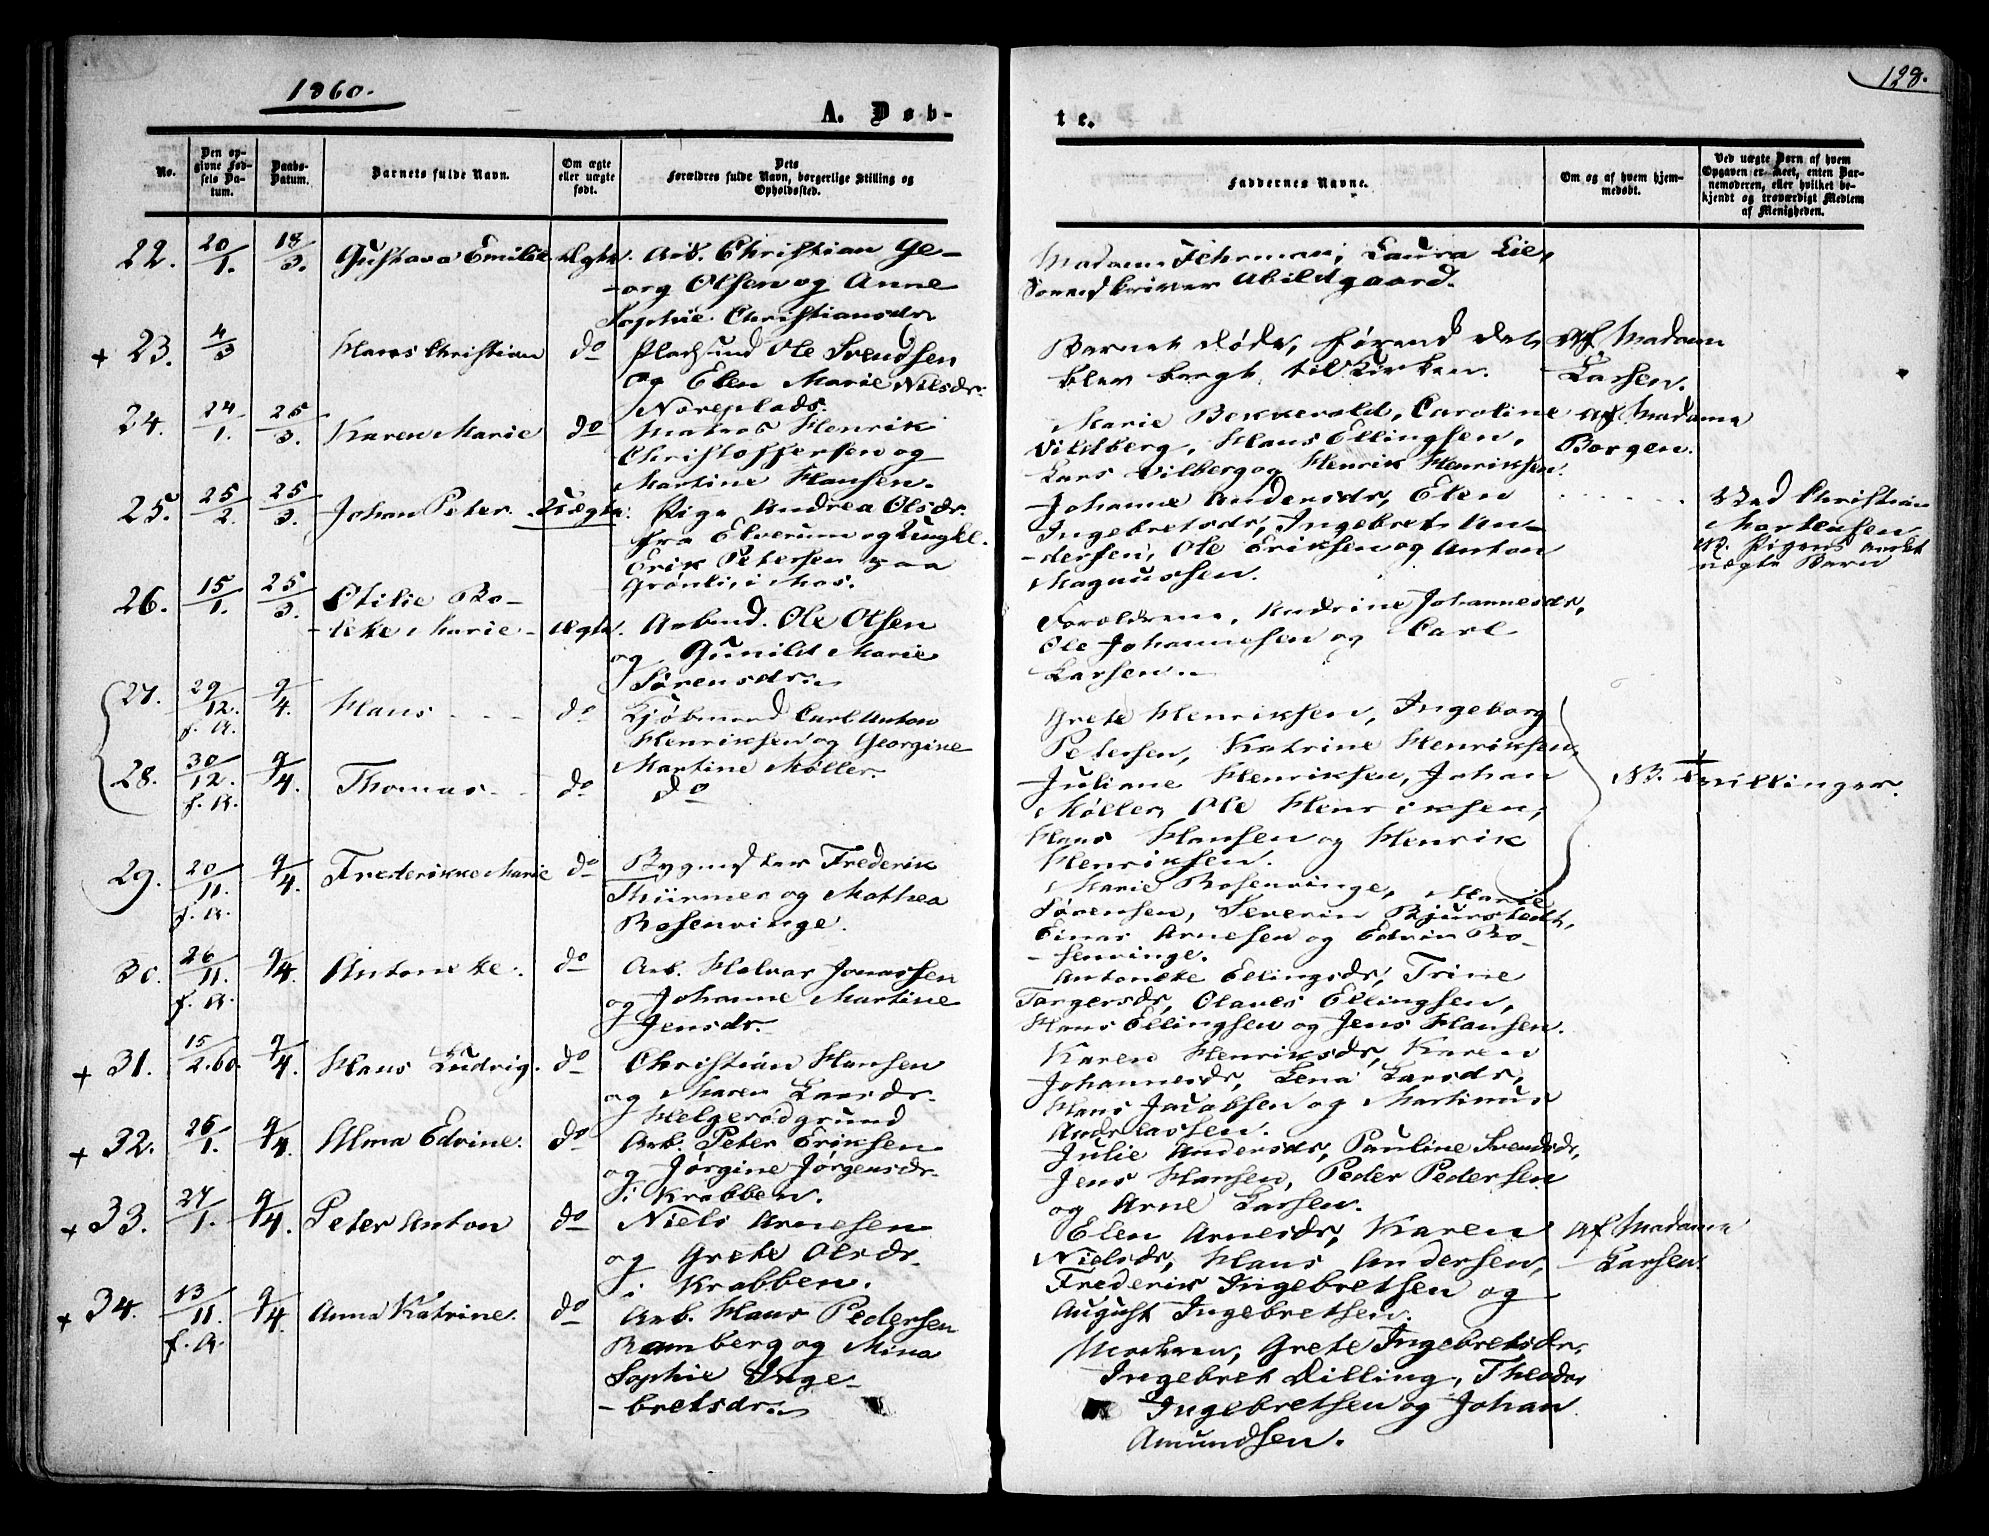 1860.
128.
A. Døb-
te.
No.
Den opgivne Fødsels Datum.
Daabs-Datum.
Barnets fulde Navn.
Om ægte eller uægte født.
Dets Forældres fulde Navn, borgerlige Stilling og Opholdssted.
Faddernes Navne.
Om og af hvem hjemmedøbt.
Ved uægte Børn af hvem Opgaven er skeet, enten Barnemoderen, eller hvilket bekjendt og troværdigt Medlem af Menigheden.
22. 20/1. 18/3. Gustava Emilie Ægte. Arb. Christian Ge-
-org Olsen og Anne
Sophie Christiansdr.
Madam Fehrman, Laura Lie,
Sorenskriver Abildgaard.
+ 23. 4/3 Hans Christian do Pladsmd Ole Svendsen
og Elen Marie Nilsdr.
Noreplads.
Barnet døde, førend det
blev bragt til Kirken.
Af Madam
Larsen.
24. 24/1. 25/3. Karen Marie do Matros Henrik
Christoffersen og
Martine Hansen.
Marie Bekkevold, Caroline
Vildberg, Hans Ellingsen,
Lars Vilberg og Henrik Henriksen.
Af Madam
Borgen.
25. 25/2. 25/3. Johan Peter Uægte. Pige Andrea Olsdr.
fra Elverum og Ungkl.
Erik Petersen paa
Grønli, i Mos.
Johanne Andersdr, Elen
Ingebretsdr, Ingebret An-
-dersen, Ole Eriksen og Anton
Magnussen.
Ved Christian
Mortensen
NB. Pigens andet
uægte Barn
26. 15/1. 25/3. Otilie Bo-
-lete Marie Ægte. Arbmd. Ole Olsen
og Gunild Marie
Sørensdr.
Forældrene, Andrine Johannesdr,
Ole Johannesen og Carl
Larsen
27. 29/12. f. A. 9/4. Hans do Kjøbmand Carl Anton
Henriksen og Georgine
Martine Møller.
28. 30/12. f. A. 9/4. Thomas do do
Grete Henriksen, Ingeborg
Petersen, Katrine Henriksen,
Juliane Henriksen, Johan
Møller, Ole Henriksen,
Hans Hansen og Henrik
Henriksen.
NB. Tvillinger.
29. 20/11. f. A. 9/4. Frederikke Marie do Bygmester Frederik
Thürmer og Mathea
Rosenvinge.
Marie Rosenvinge, Marie
Sørensen, Severin Bjurstedt,
Einar Arnesen og Edvin Ro-
-senvinge.
30. 26/11. f. A. 9/4. Antonette. do Arb. Halvor Jonassen
og Johanne Martine
Jensdr.
Antonette Ellingsdr, Trine
Torgersdr, Olaves Ellingsen,
Hans Ellingsen og Jens Hansen.
+ 31. 15/2.60. 9/4. Hans Ludvig. do Christian Hansen
og Maren Larsdr.
Helgerødgrund
Karen Henriksdr, Karen
Johannesdr, Lena Larsdr,
Hans Jacobsen og Martinus
Andreassen.
+ 32. 26/1. 9/4. Alma Edvine. do Arb. Peter Eriksen
og Jørgine Jørgensdr.
i Krabben.
Julie Andersdr, Pauline Svendsdr,
Jens Hansen, Peder Pedersen
og Arne Larsen.
+ 33. 27/1. 9/4. Peter Anton do Niels Arnesen
og Grete Olsdr.
i Krabben.
Elen Arnesdr, Karen
Nielsdr, Hans Andersen,
Frederik Ingebretsen og
August Ingebretsen.
Af Madam
Larsen.
+ 34. 13/11. f. A. 9/4. Anna Katrine. do Arb. Hans Pedersen
Ramberg og Mina
Sophie Inge-
-bretsdr.
Moderen, Grete Ingebretsdr,
Ingebret Dilling, Theodr
Ingebretsen og Johan
Amundsen.